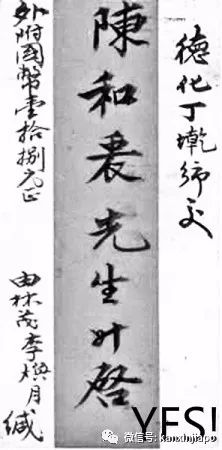 德化丁墘
陳和
先生
啓
外附國幣壹拾捌元正
由林茂李煥月緘
YES!
微信号: kanxinjiapo